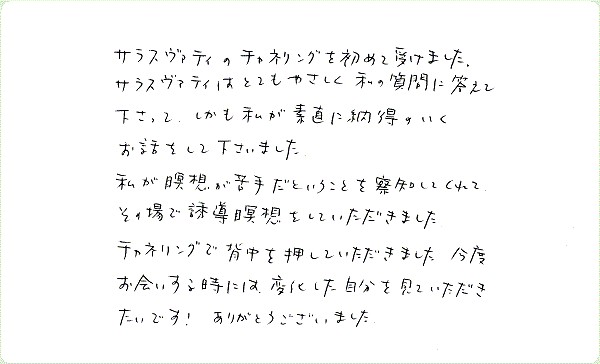 サラスヴァティのチャネリングを初めて受けました。
サラスヴァティはとてもやさしく私の質問に答えて
下さって、しかも私が素直に納得のいく
お話をして下さいました。
私が瞑想が苦手だということを察知してくれて、
その場で誘導瞑想をしていただきました
チャネリングで背中を押していただきました 今度
お会いする時には、変化した自分を見ていただき
たいです! ありがとうございました